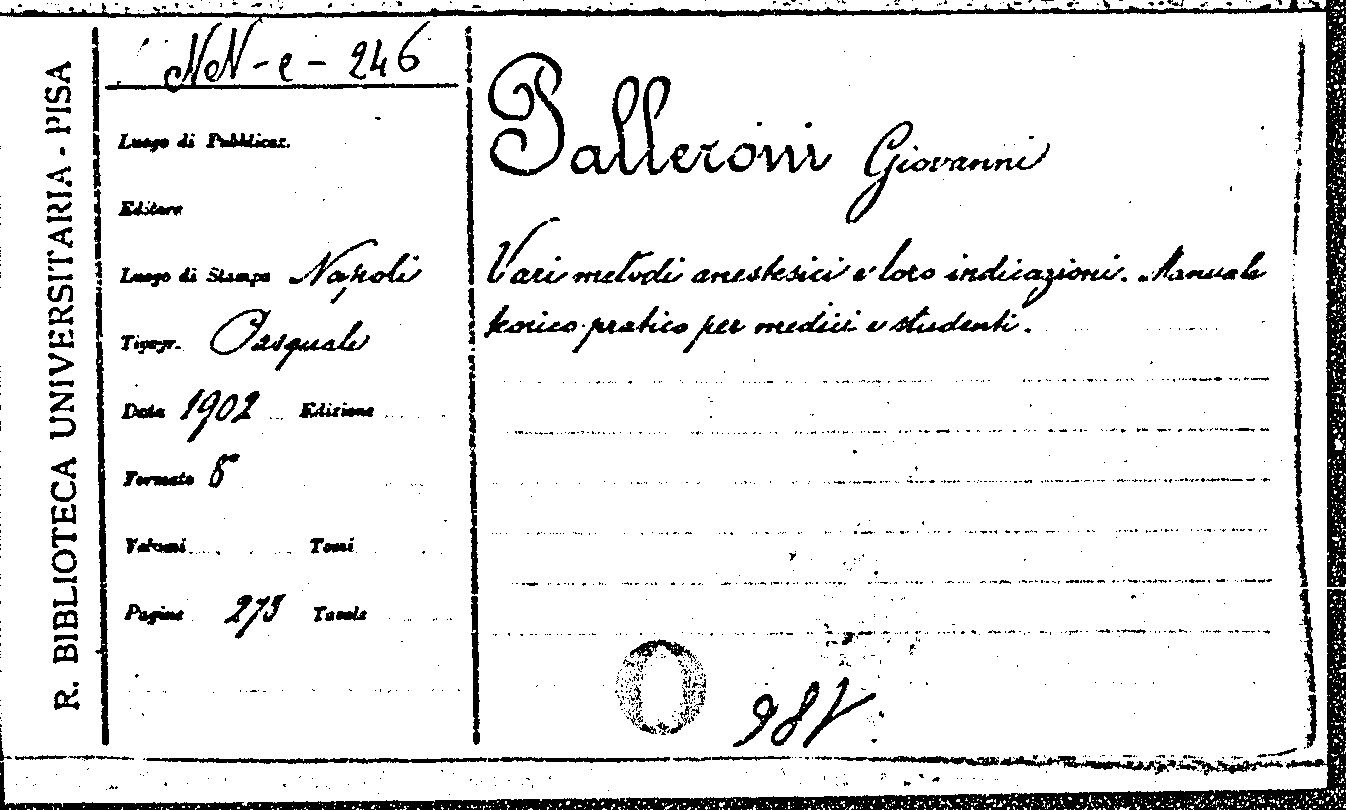 R. BIBLIOTECA UNIVERSITARIA - PISA
NN - e - 246
Luogo di Pubblicaz.
Editore
Luogo di Stampa Napoli
Tipogr. Pasquale
Data 1902 Edizione
Formato 8°
Volumi Tomi
Pagine 275 Tavole
Palleroni Giovanni
Vari metodi anestesici e loro indicazioni. Manuale
teorico-pratico per medici e studenti.